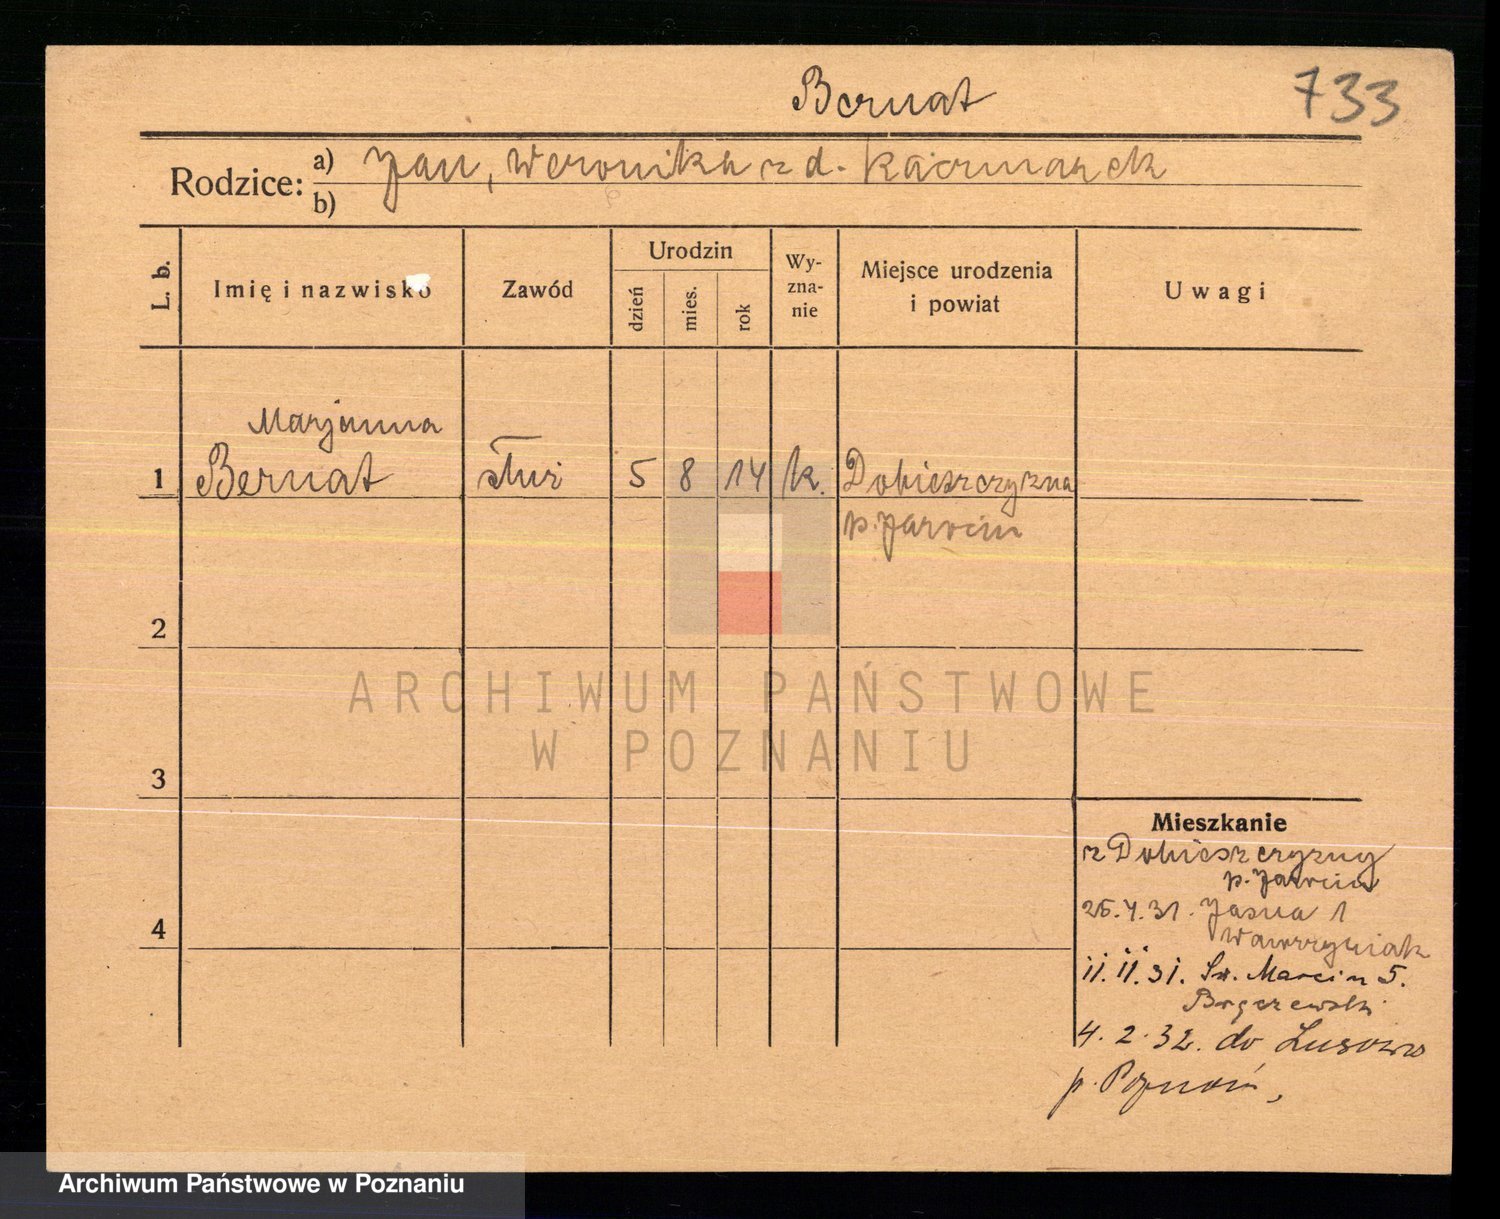 Bernat
733
Rodzice:
a) Jan, Weronika z d. Kaczmarek
b)
L. b.
Imię i nazwisko
Zawód
Urodzin
dzień
mies.
rok
Wy-
zna-
nie
Miejsce urodzenia
i powiat
Uwagi
Marjanna
1 Bernat służ 5 8 14 k. Dobieszczyzna
p. Jarocin
2
3
4
Mieszkanie
z Dobieszczyzny
p. Jarocin
25.4.31. Jasna 1
Wawrzyniak
11.11.31. Św. Marcin 5.
4.2.32. do Lusowo
p. Poznań,
ARCHIWUM PAŃSTWOWE
W POZNANIU
Archiwum Państwowe w Poznaniu